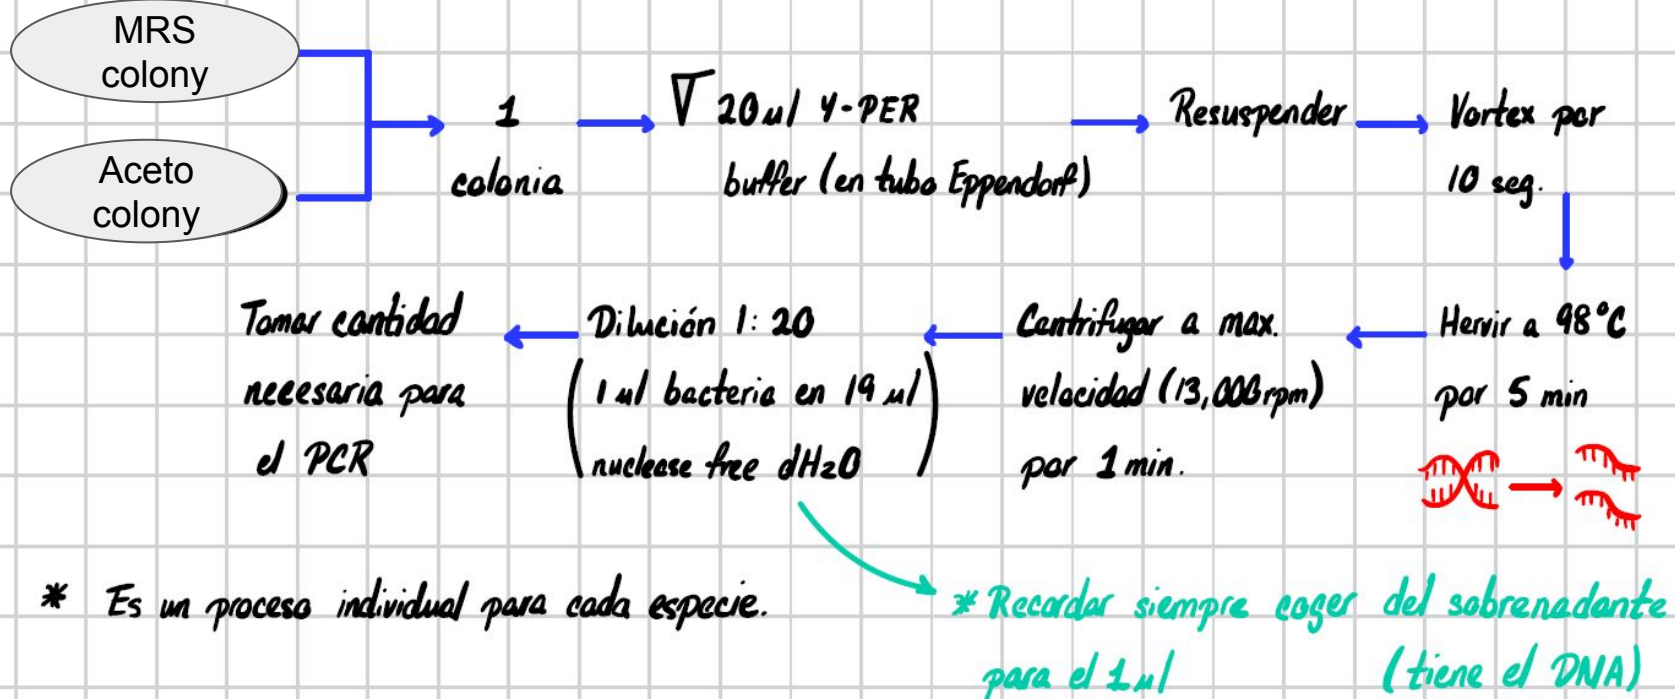 MRS
colony
Aceto
colony
1
colonia
20ul Y-PER
buffer (en tubo Eppendorf)
Resuspender
Vortex por
10 seg.
Hervir a 98°C
por 5 min
Centrifugar a max.
velocidad (13,000rpm)
por 1 min.
Dilución 1:20
(1 ul bacteria en 19 ul
nuclease free dH2O)
Tomar cantidad
necesaria para
el PCR
* Es un proceso individual para cada especie.
* Recordar siempre coger del sobrenadante
para el 1ul (tiene el DNA)